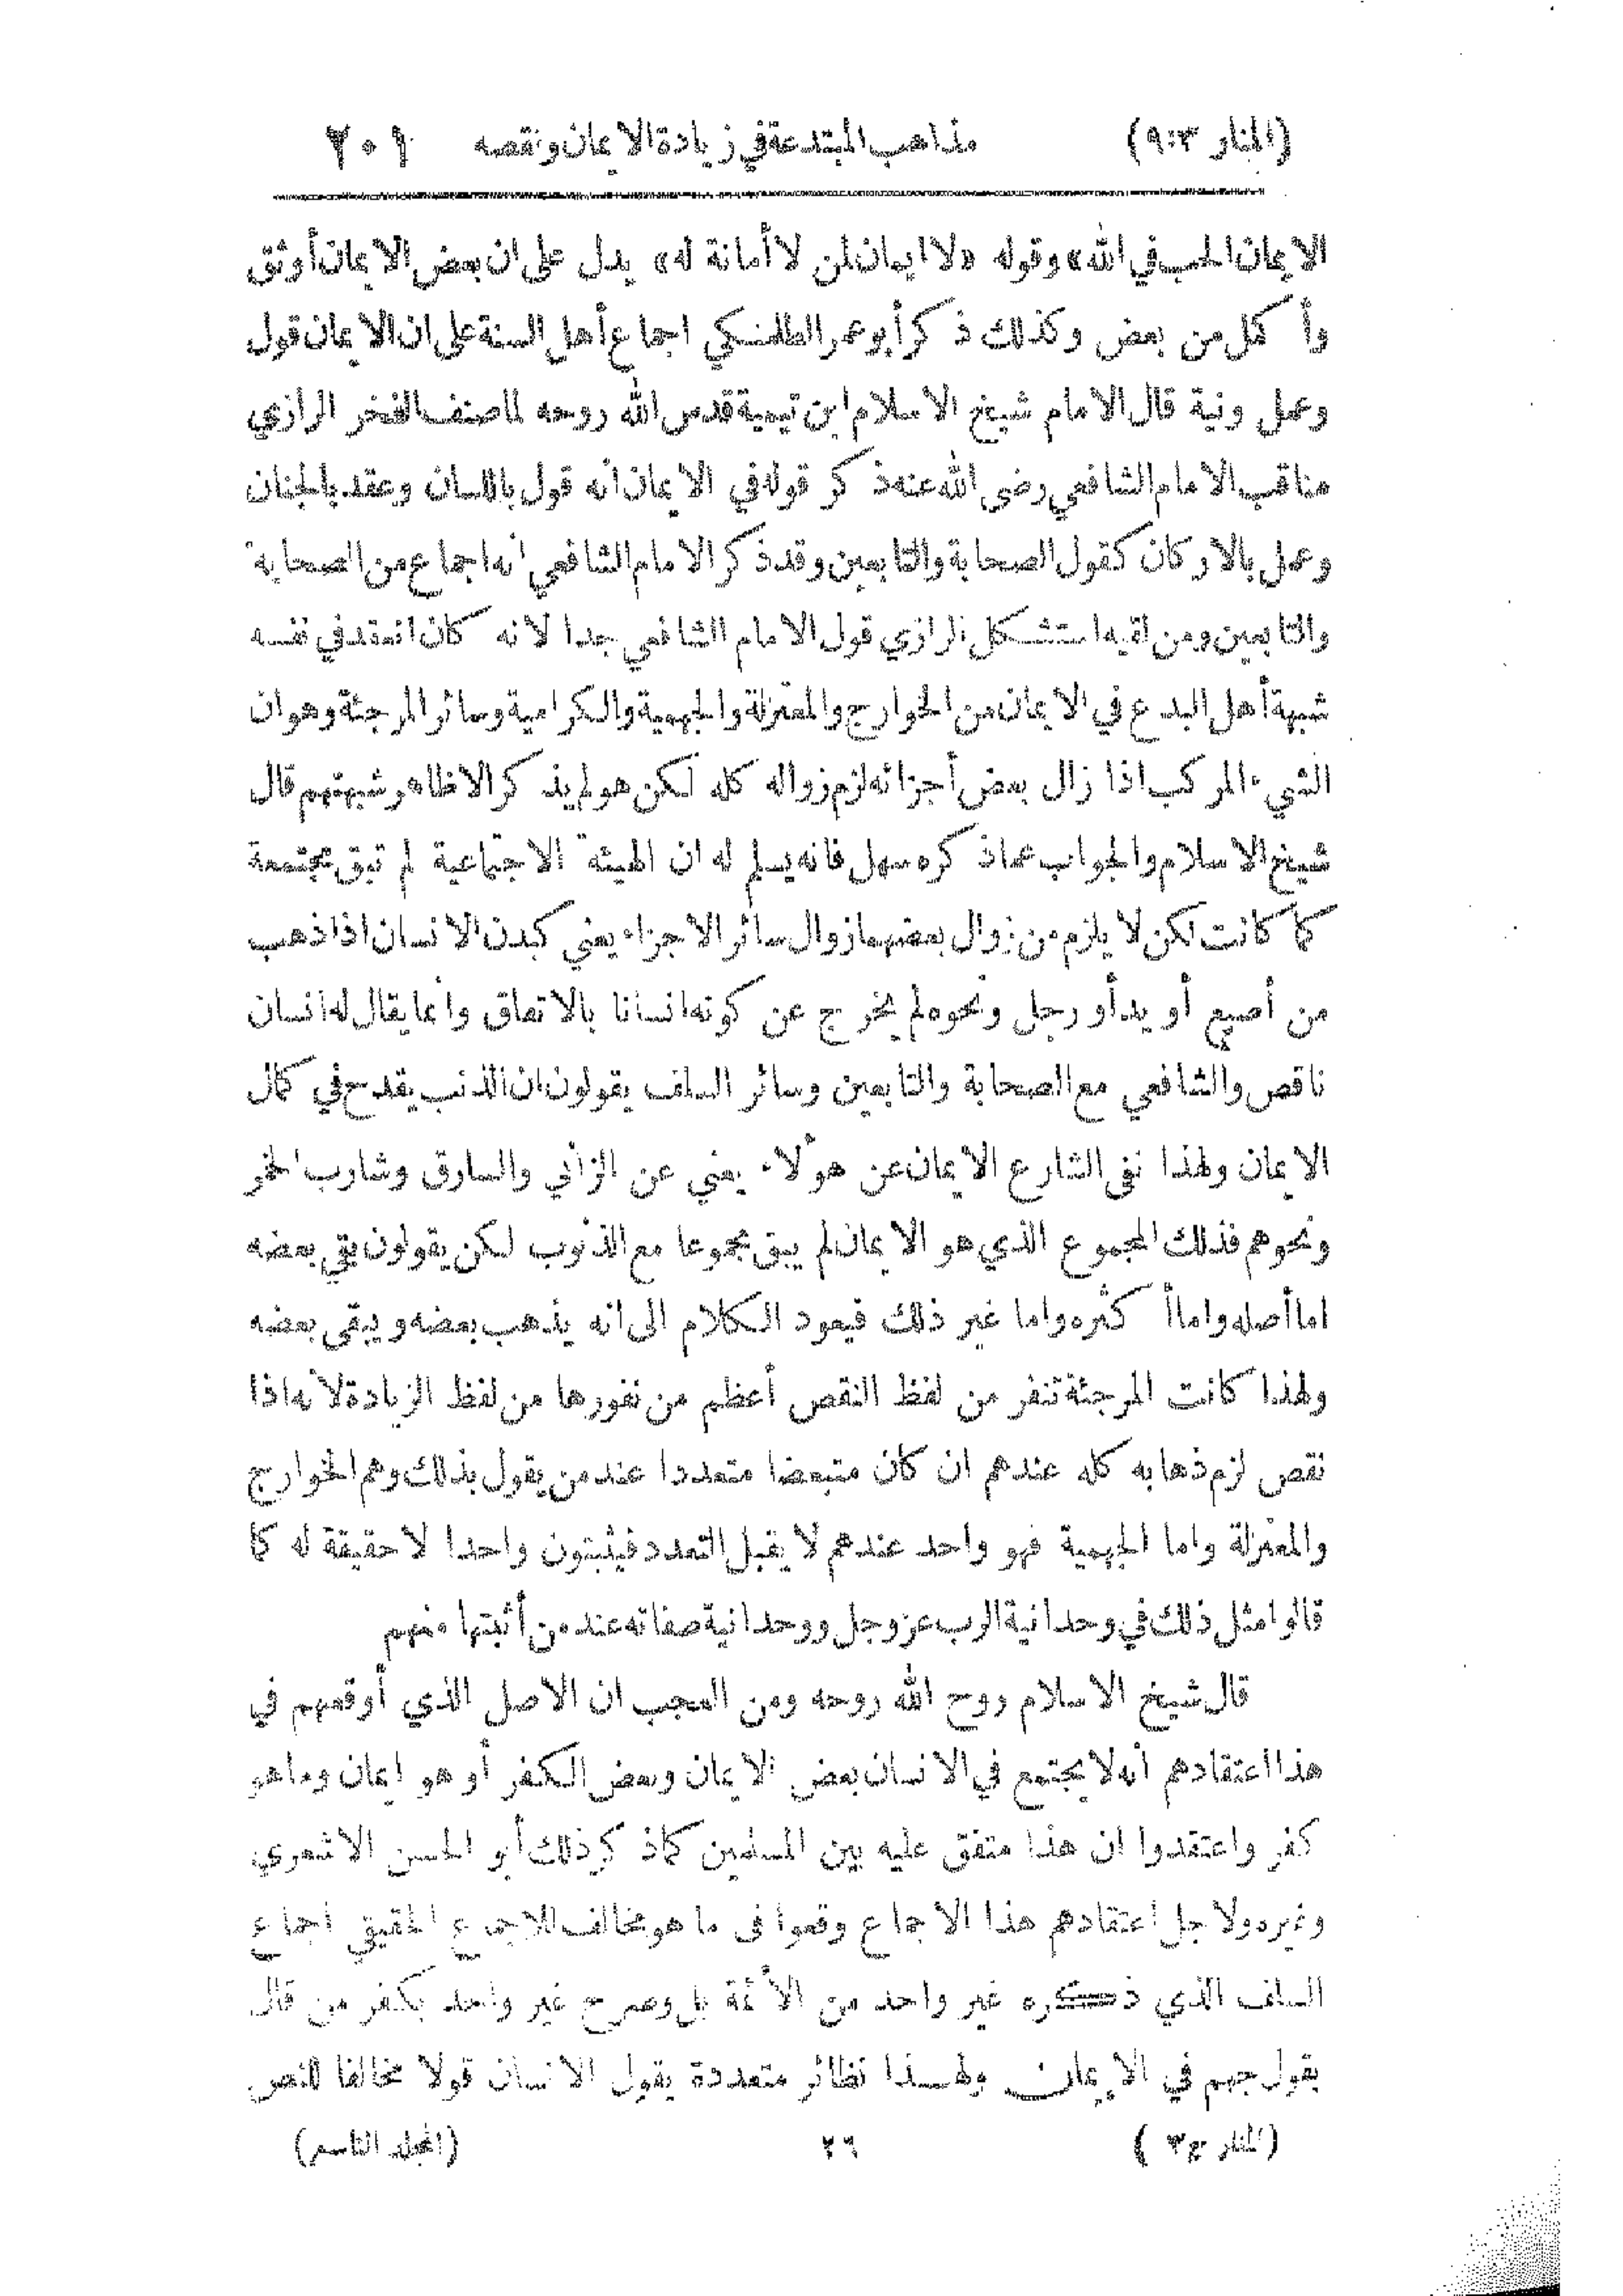 (المنار ٣:٩) مذاهب المبتدعة في زيادة الايمان ونقصه ٢٠١
الايمان الحب في الله» وقوله «لا ايمان لمن لا أمانة له» يدل على ان بعض الايمان أوثق
وأكمل من بعض وكذلك ذكر أبو عمر الطلمنكي اجماع أهل السنة على ان الايمان قول
وعمل ونية قال الامام شيخ الاسلام ابن تيمية قدس الله روحه لما صنف الفخر الرازي
مناقب الامام الشافعي رضى الله عنه ذكر قوله في الايمان أنه قول باللسان وعقد بالجنان
وعمل بالاركان كقول الصحابة والتابعين وقد ذكر الامام الشافعي انه اجماع من الصحابة
والتابعين ومن لقيه استشكل الرازي قول الامام الشافعي جدا لانه كان انعقد في نفسه
شبهة أهل البدع في الايمان من الخوارج والمعتزلة والجهمية والكرامية وسائر المرجئة وهو ان
الشيء المركب اذا زال بعض أجزائه لزم زواله كله لكن هو لم يذكر الا ظاهر شبهتهم قال
شيخ الاسلام والجواب عما ذكره سهل فانه يسلم له ان الهيئة الاجتماعية لم تبق مجتمعة
كما كانت لكن لا يلزم من زوال بعضها زوال سائر الاجزاء يعني كبدن الانسان اذا ذهب
من أصبع أو يد أو رجل ونحوه لم يخرج عن كونه انسانا بالاتفاق وانما يقال له انسان
ناقص والشافعي مع الصحابة والتابعين وسائر السلف يقولون ان الذنب يقدح في كمال
الايمان ولهذا نفى الشارع الايمان عن هؤلاء يعني عن الزاني والسارق وشارب الخمر
ونحوهم فذلك المجموع الذي هو الايمان لم يبق مجموعا مع الذنوب لكن يقولون بقي بعضه
اما أصله واما أكثره واما غير ذلك فيعود الكلام الى انه يذهب بعضه ويبقى بعضه
ولهذا كانت المرجئة تنفر من لفظ النقص أعظم من نفورها من لفظ الزيادة لانه اذا
نقص لزم ذهابه كله عندهم ان كان متبعضا متعددا عند من يقول بذلك وهم الخوارج
والمعتزلة واما الجهمية فهو واحد عندهم لا يقبل التعدد فيثبتون واحدا لا حقيقة له كما
قالوا مثل ذلك في وحدانية الرب عز وجل ووحدانية صفاته عند من أثبتها منهم
قال شيخ الاسلام روح الله روحه ومن العجب ان الاصل الذي أوقعهم في
هذا اعتقادهم أنه لا يجتمع في الانسان بعض الايمان وبعض الكفر أو هو ايمان وما هو
كفر واعتقدوا ان هذا متفق عليه بين المسلمين كما ذكر ذلك أبو الحسن الاشعري
وغيره ولاجل اعتقادهم هذا الاجماع وقعوا فى ما هو مخالف للاجماع الحقيقي اجماع
السلف الذي ذكره غير واحد من الأئمة بل وصرح غير واحد بكفر من قال
بقول جهم في الايمان ولهذا نظائر متعددة يقول الانسان قولا مخالفا للنص
(المنار ج ٣) ٢٦ (المجلد التاسع)